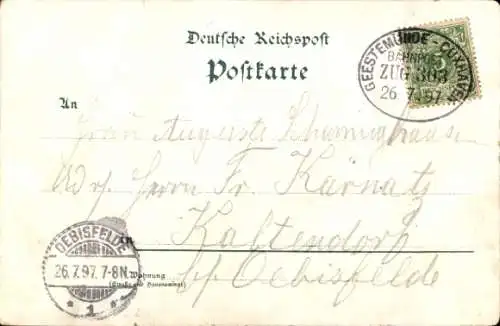 Deutsche Reichspost
Postkarte
GEESTEMÜNDE - CUXHAVEN
BAHNPOST
ZUG 303
26.7.97
5
An
Frau Auguste
Adr. Herrn Fr. Kärnatz
Kaltendorf
bei Oebisfelde
in
OEBISFELDE
26.7.97. 7-8N.
* 1 *
Wohnung
(Straße und Hausnummer)